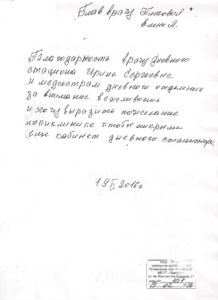 Глав врачу
Благодарность врачу дневного
стационара Ирине Сергеевне
и медсёстрам дневного отделения
за внимание вежливость
и хочу выразить пожелание
поликлинике чтобы открыли
кабинет дневного стационара